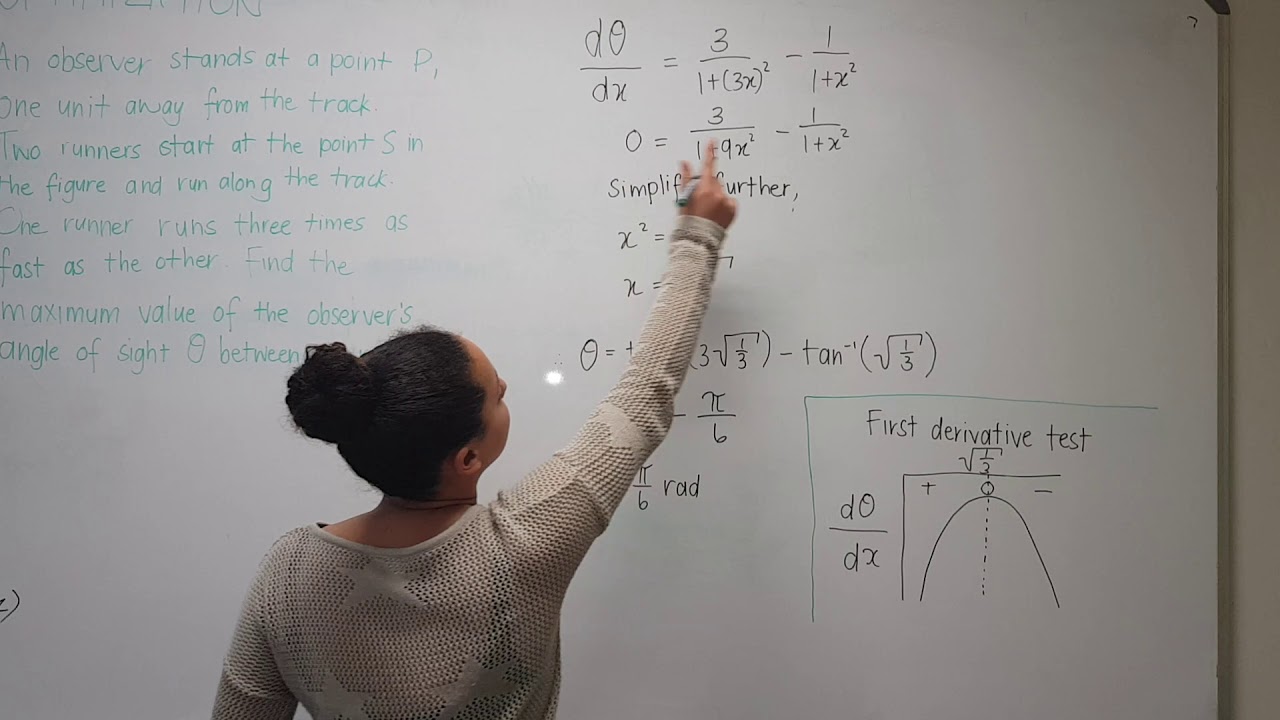 An observer stands at a point P,
one unit away from the track.
Two runners start at the point S in
the figure and run along the track.
One runner runs three times as
fast as the other. Find the
maximum value of the observer's
angle of sight θ between
dθ/dx = 3/(1+(3x)²) − 1/(1+x²)
0 = 3/(1+9x²) − 1/(1+x²)
Simplify further,
x² =
x =
∴ θ = (3√(1/3)) − tan⁻¹(√(1/3))
− π/6
π/6 rad
First derivative test
√(1/3)
+ 0 −
dθ/dx